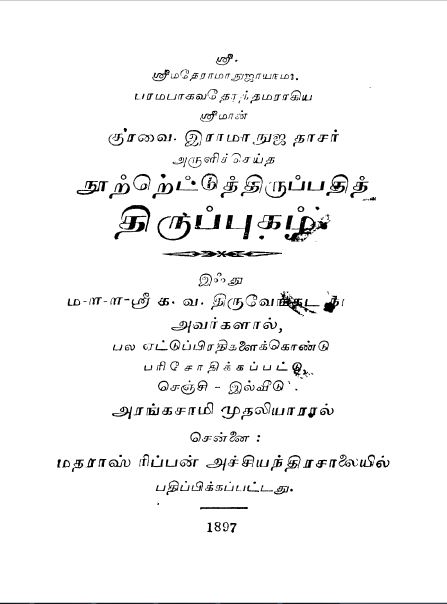 ஸ்ரீ.
ஸ்ரீமதேராமாநுஜாயநம:.
பரமபாகவதோத்தமராகிய
ஸ்ரீமான்
குரவை. இராமாநுஜ தாசர்
அருளிச்செய்த
நூற்றெட்டுத்திருப்பதித்
திருப்புகழ்.
இஃது
ம-ள-ள-ஸ்ரீ க. வ.
அவர்களால்,
பல ஏட்டுப்பிரதிகளைக்கொண்டு
பரிசோதிக்கப்பட்டு,
செஞ்சி - இல்வீடு
அரங்கசாமி முதலியாரால்
சென்னை :
மதராஸ் ரிப்பன் அச்சியந்திரசாலையில்
பதிப்பிக்கப்பட்டது.
1897